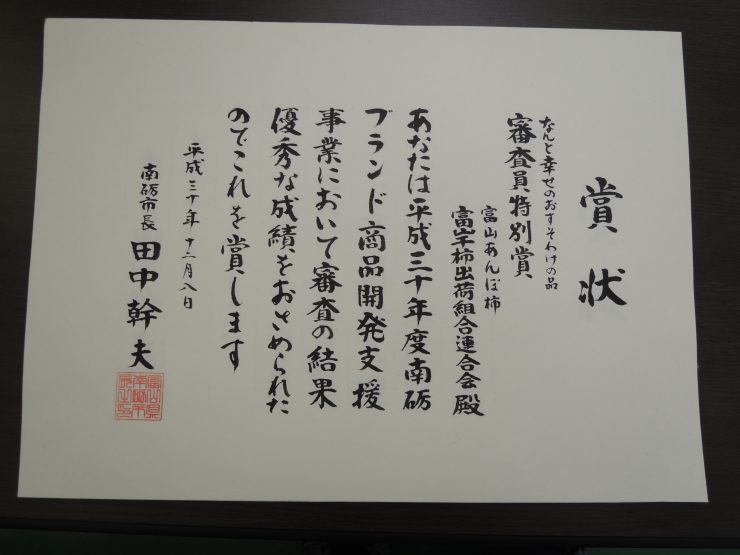 賞状
なんと幸せのおすそわけの品
審査員特別賞
富山あんぽ柿
富山干柿出荷組合連合会 殿
あなたは平成三十年度南砺
ブランド商品開発支援
事業において審査の結果
優秀な成績をおさめられた
のでこれを賞します
平成三十年十二月八日
南砺市長 田中幹夫
富山県南砺市長之印